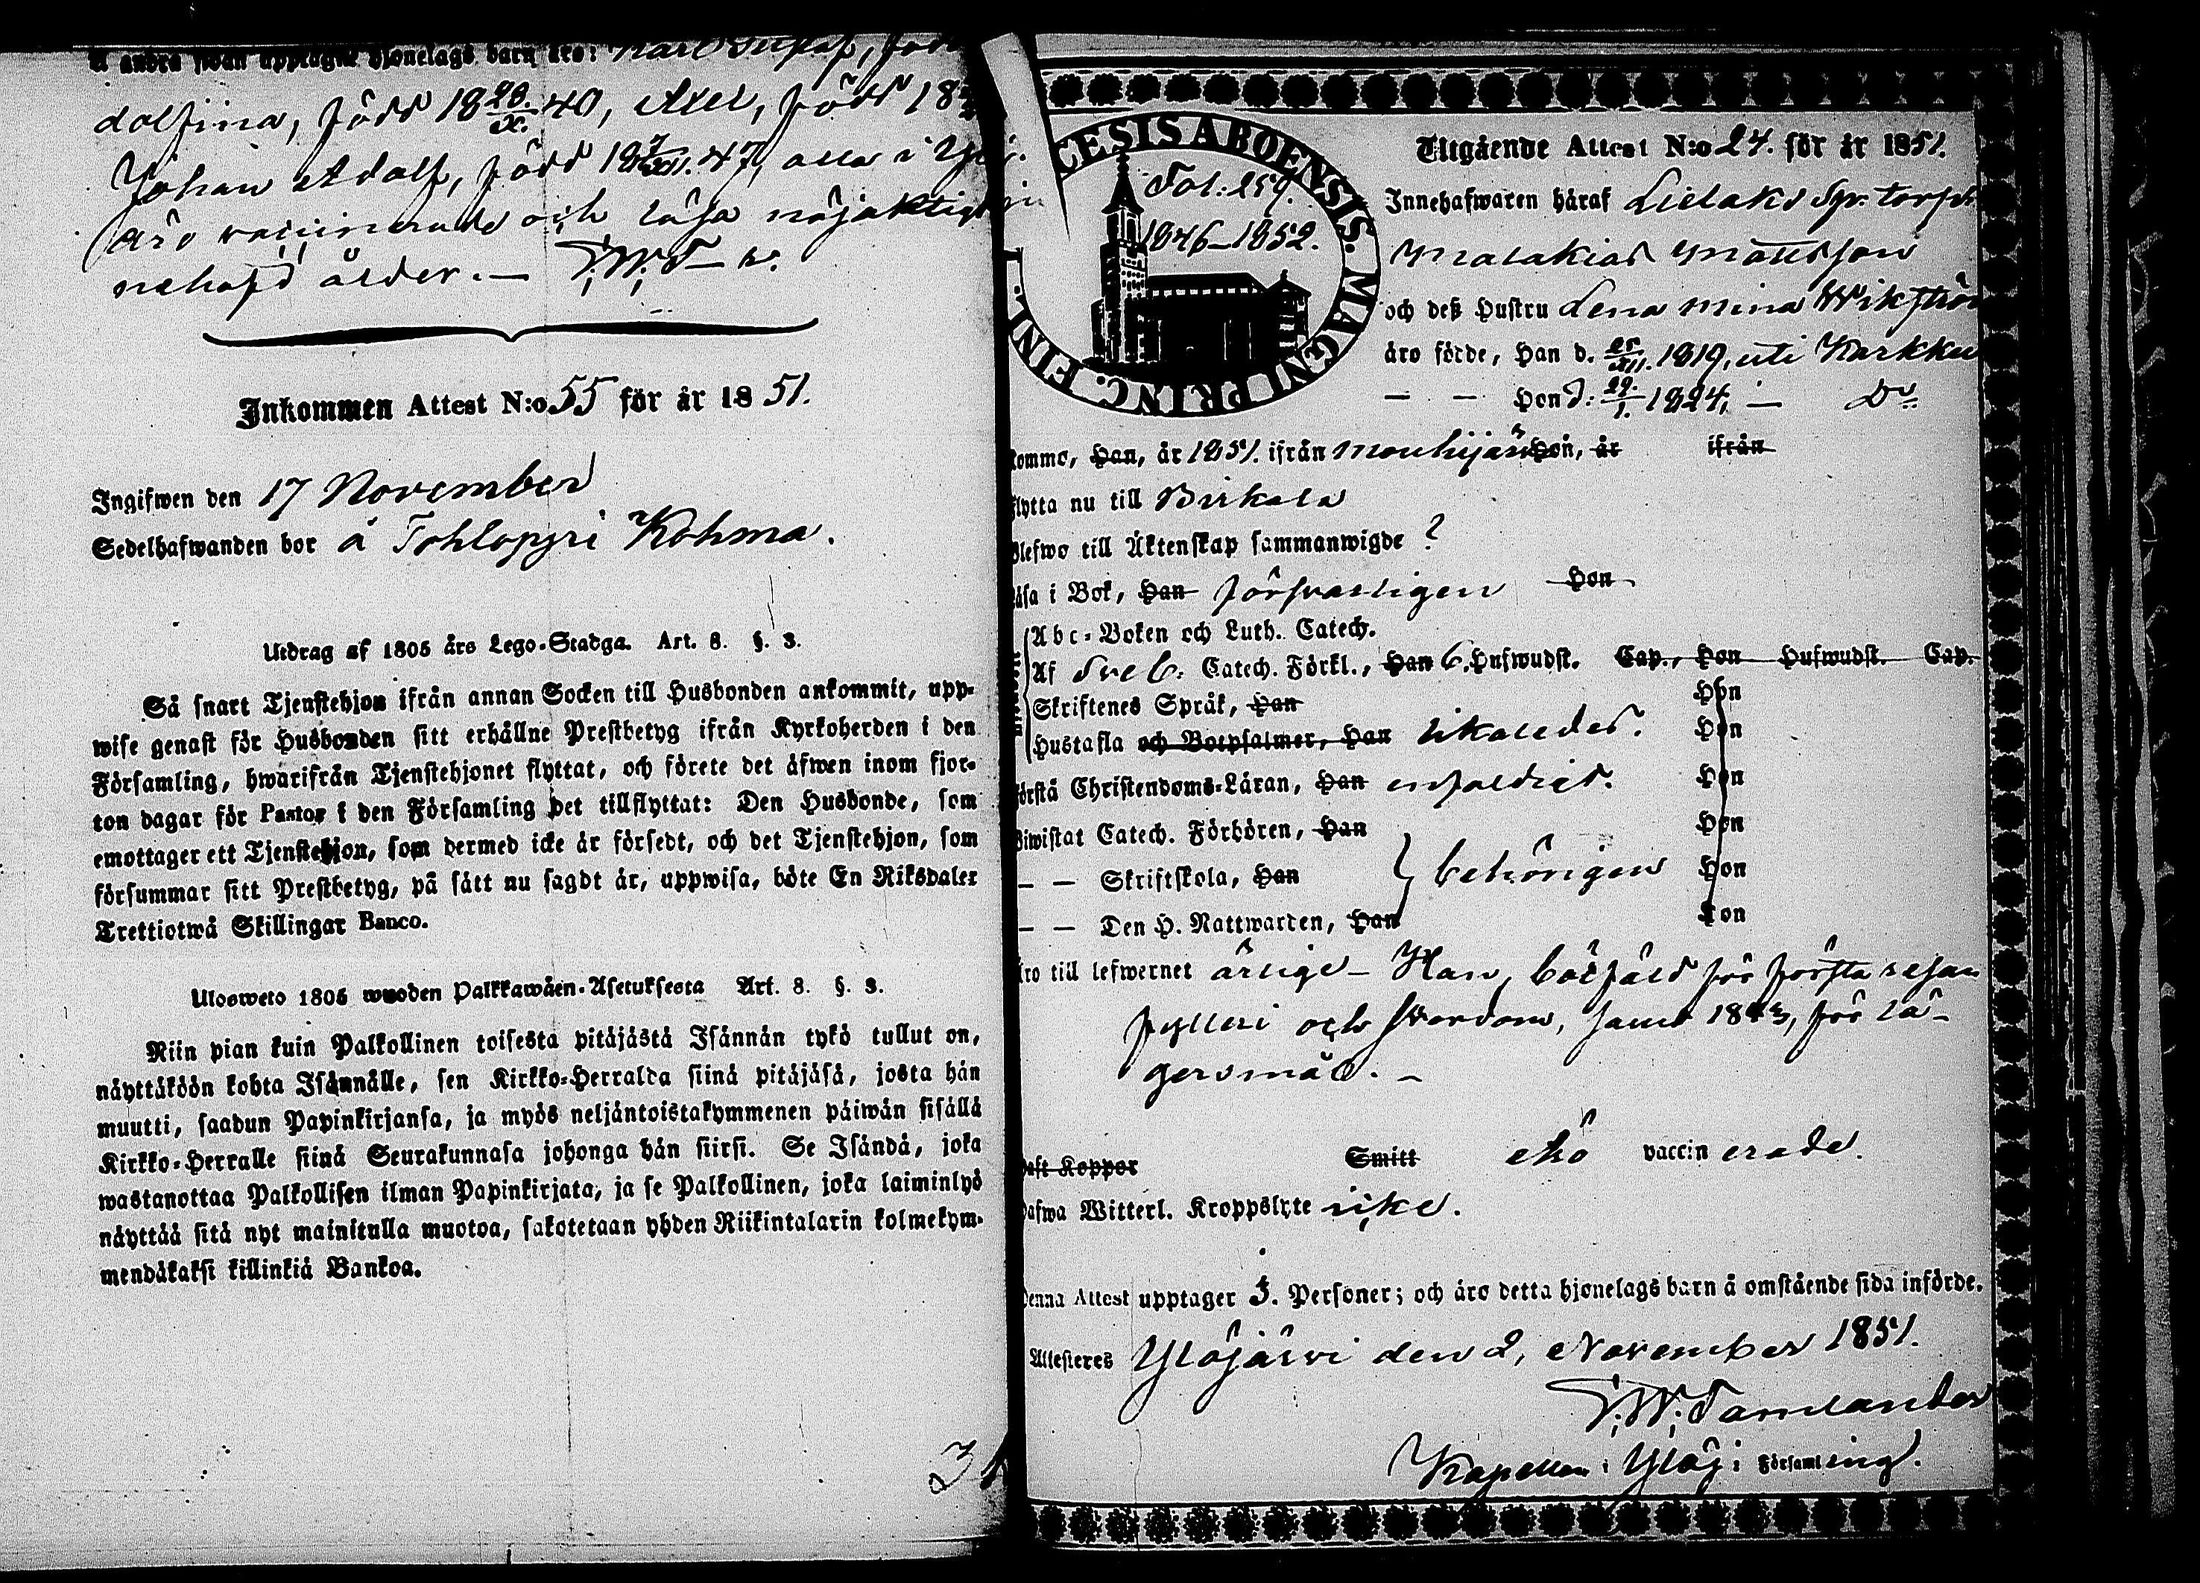 å andra sidan upptagne hjonelags barn äro:
dolfina, född 18 20/X. 40, Axel, född 18
Johan Adolf, född 18 7/XI. 47, alla i
äro vaccinerade och läsa nöjaktigt
nehafd ålder. — F. W. T—r.
Inkommen Attest N:o 55 för år 1851.
Ingifwen den 17 November
Sedelhafwanden bor å Tohlopyri Kohma.
Utdrag af 1805 års Lego-Stadga. Art. 8. §. 3.
Så snart Tjenstehjon ifrån annan Socken till Husbonden ankommit, upp-
wise genast för Husbonden sitt erhållne Prestbetyg ifrån Kyrkoherden i den
Församling, hwarifrån Tjenstehjonet flyttat, och förete det äfwen inom fjor-
ton dagar för Pastor i den Församling det tillflyttat: Den Husbonde, som
emottager ett Tjenstehjon, som dermed icke är försedt, och det Tjenstehjon, som
försummar sitt Prestbetyg, på sätt nu sagdt är, uppwisa, böte En Riksdaler
Trettiotwå Skillingar Banco.
Ulosweto 1805 wuoden Palkkawäen-Asetuksesta Art. 8. §. 3.
Niin pian kuin Palkollinen toisesta pitäjästä Isännän tykö tullut on,
näyttäköön kohta Isännälle, sen Kirkko-Herralda siinä pitäjäsä, josta hän
muutti, saadun Papinkirjansa, ja myös neljäntoistakymmenen päiwän sisällä
Kirkko-Herralle siinä Seurakunnasa johonga hän siirsi. Se Isändä, joka
wastanottaa Palkollisen ilman Papinkirjata, ja se Palkollinen, joka laiminlyö
näyttää sitä nyt mainitulla muotoa, sakotetaan yhden Riikintalarin kolmekym-
mendäkaksi killinkiä Bankoa.
CESIS ABOENSIS. MAGNI PRINC. FINL.
Fol: 259.
1846—1852.
Utgående Attest N:o 24. för år 1851.
Innehafwaren häraf Lielaks Sp. torp.
Malakias Mattsson
och deß Hustru Lena Mina Wikström
äro födde, Han d. /XII. 1819, uti Karkku
— — Hon d. 29/1. 1824, — D:o
komme, Han, år 1851. ifrån Mouhijärvi Hon, år ifrån
flytta nu till Birkala
Blefwo till Äktenskap sammanwigde ?
Läsa i Bok, Han försvarligen Hon
Abc-Boken och Luth. Catech.
Af Sveb. Catech. Förkl., Han 6. Hufwudst. Cap., Hon Hufwudst. Cap.
Skriftenes Språk, Han Hon
Hustafla och Botpsalmer, Han likaledes. Hon
Förstå Christendoms-Läran, Han enfaldigt. Hon
Biwistat Catech. Förhören, Han Hon
— — Skriftskola, Han behörigen Hon
— — Den H. Nattwarden, Han Hon
Äro till lefwernet ärlige — Han, bötfäld för första resan
fylleri och svordom, samt 1843, för lä-
gersmål. —
Haft Koppor Smitt äro vaccinerade.
Hafwa Witterl. Kroppslyte icke.
Denna Attest upptager 5. Personer; och äro detta hjonelags barn å omstående sida införde.
Attesteres Ylöjärvi den 2, November 1851.
F. W. Tamlander
Kapellan i Ylöj: Församling.